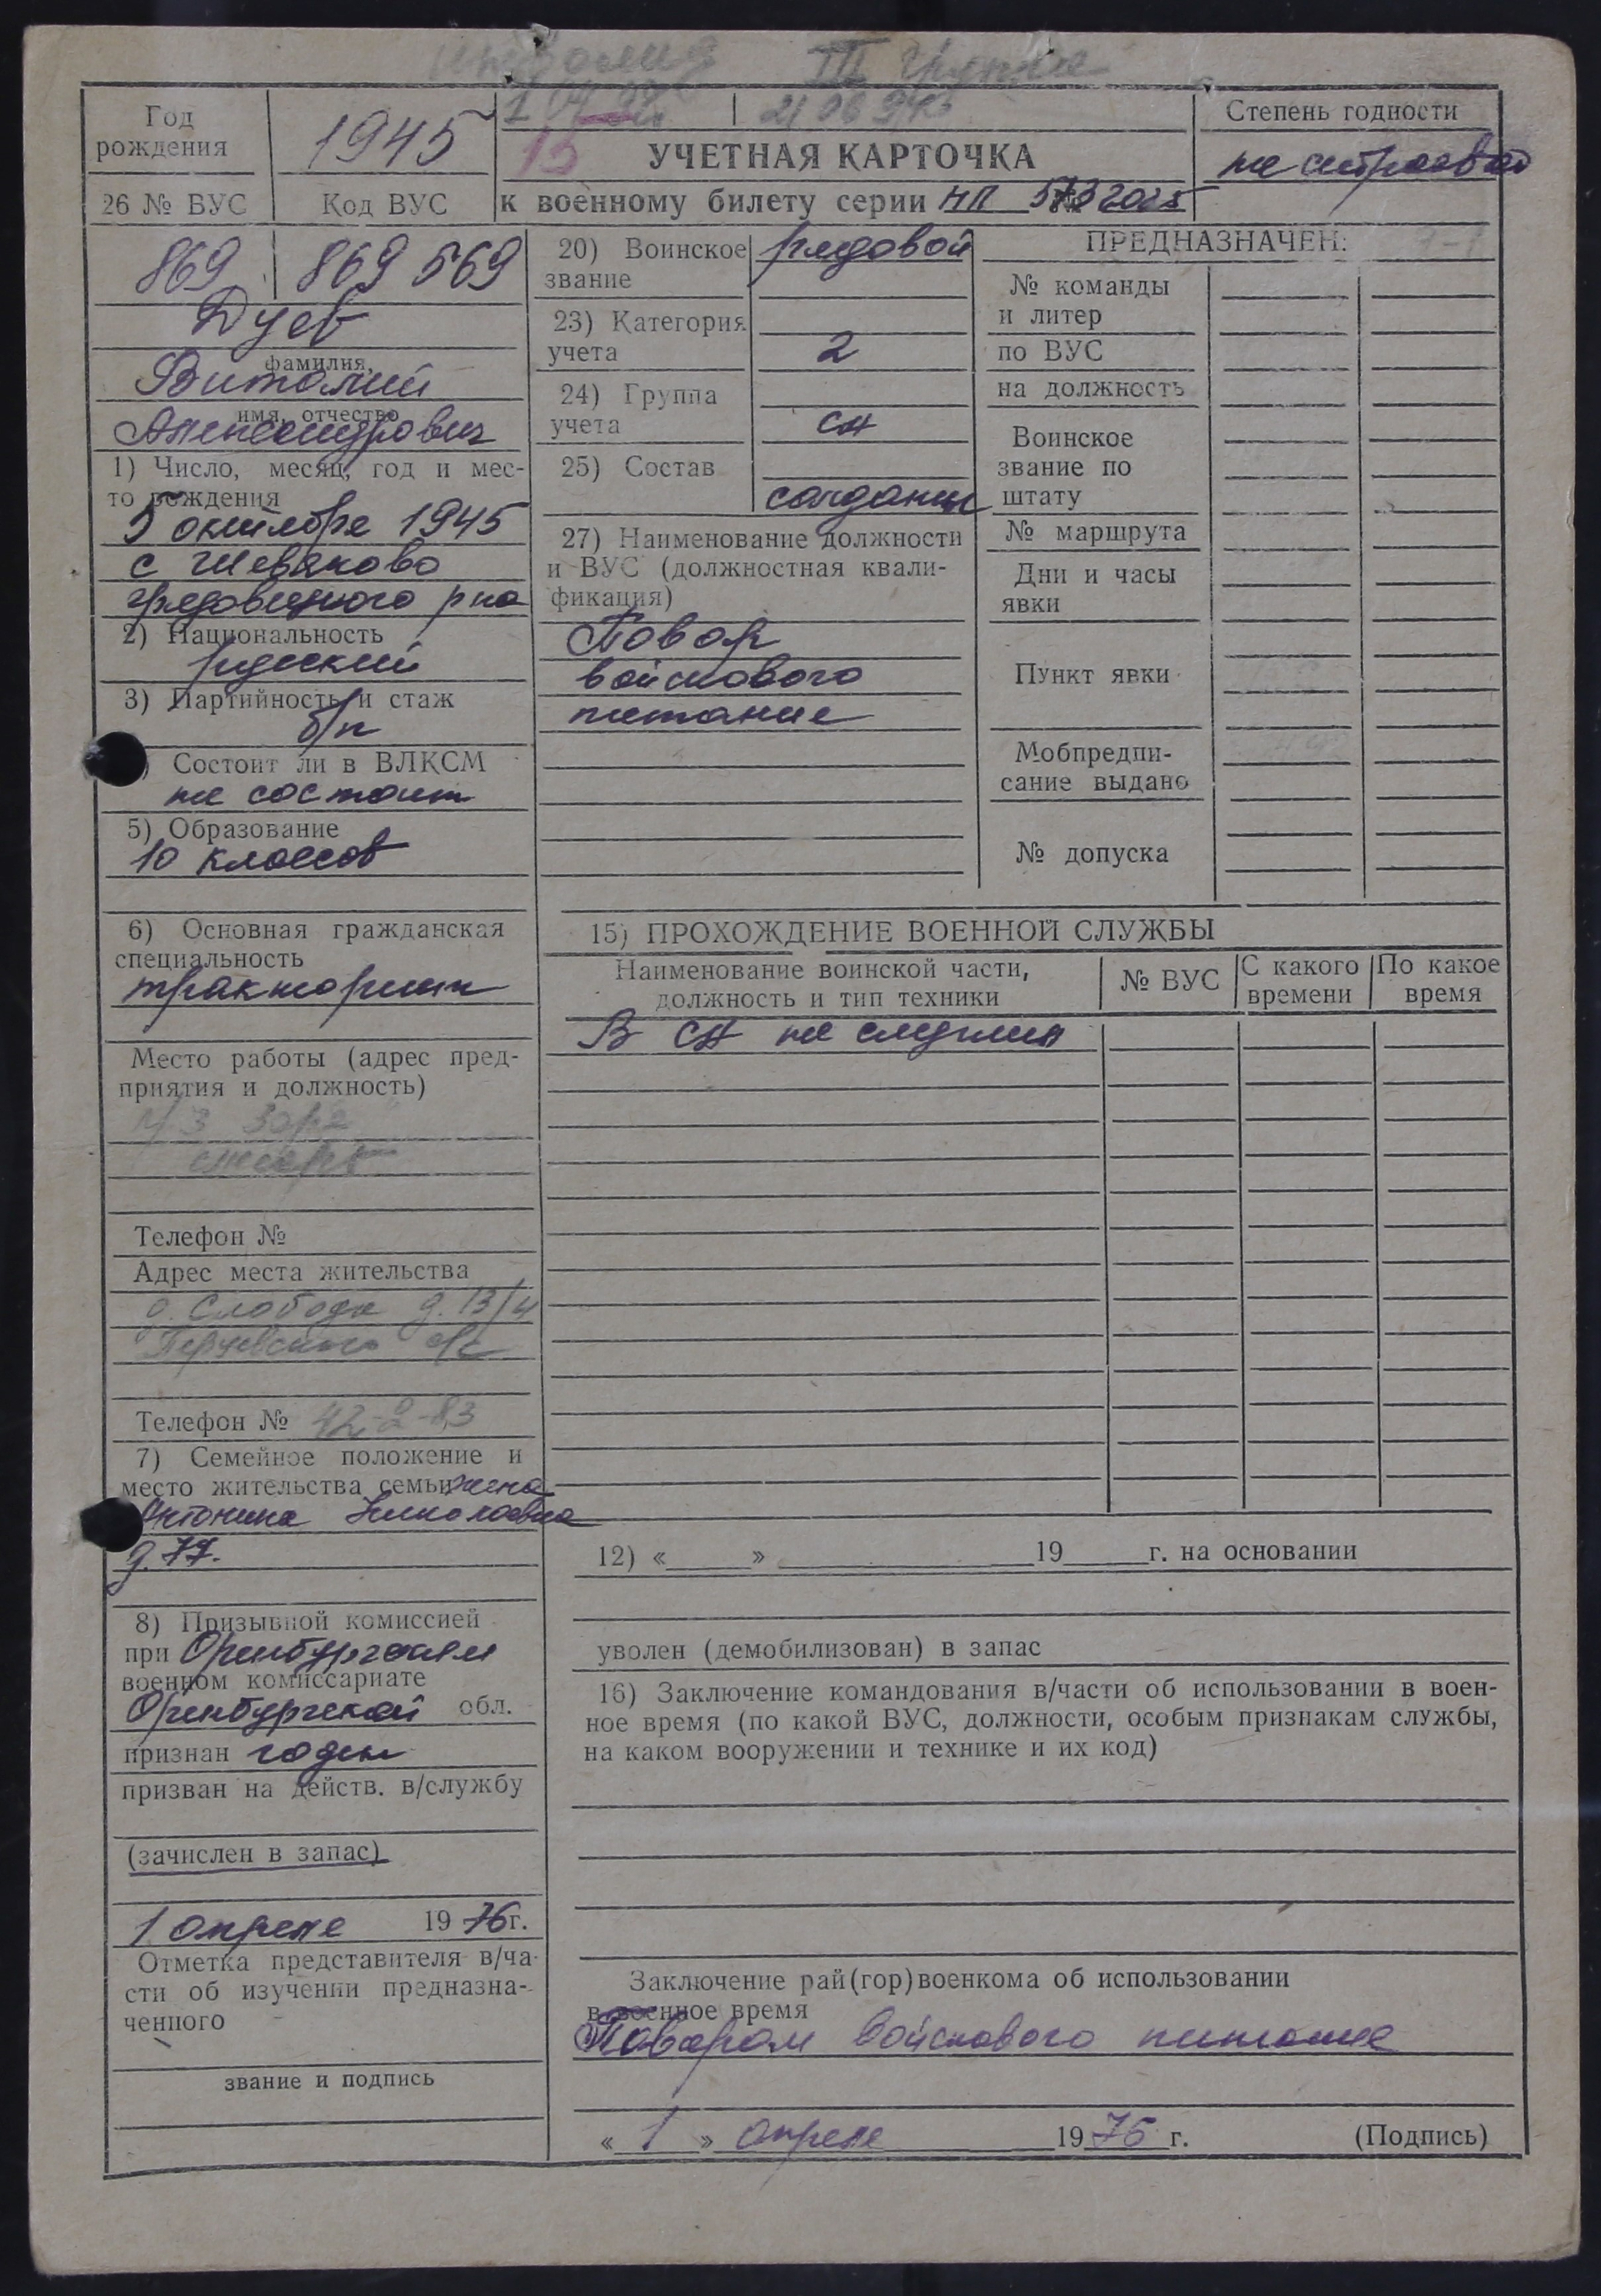 III группа
Год рождения
1945
21 06 94г
13
УЧЕТНАЯ КАРТОЧКА
Степень годности
не строевой
26 № ВУС
Код ВУС
к военному билету серии НП
869
869 569
Дуев
фамилия,
Виталий
имя, отчество
Александрович
1) Число, месяц, год и мес-
то рождения
5 октября 1945
с Шевяково
грязовецкого р на
2) Национальность
русский
3) Партийность и стаж
б/п
Состоит ли в ВЛКСМ
не состоит
5) Образование
10 классов
6) Основная гражданская
специальность
тракторист
Место работы (адрес пред-
приятия и должность)
Телефон №
Адрес места жительства
д. Слобода д. 13/4
Перцевского с/с
Телефон № 42-2-83
7) Семейное положение и
место жительства семьи жена
Антонина Николаевна
д. 77.
8) Призывной комиссией
при Оренбургском
военном комиссариате
Оренбургской обл.
признан годен
призван на действ. в/службу
(зачислен в запас)
1 апреля 1976г.
Отметка представителя в/ча-
сти об изучении предназна-
ченного
звание и подпись
20) Воинское
звание
рядовой
23) Категория
учета
2
24) Группа
учета
СА
25) Состав
солдаты
27) Наименование должности
и ВУС (должностная квали-
фикация)
Повар
войскового
питание
ПРЕДНАЗНАЧЕН:
№ команды
и литер
по ВУС
на должность
Воинское
звание по
штату
№ маршрута
Дни и часы
явки
Пункт явки
Мобпредпи-
сание выдано
№ допуска
15) ПРОХОЖДЕНИЕ ВОЕННОЙ СЛУЖБЫ
Наименование воинской части,
должность и тип техники
№ ВУС
С какого
времени
По какое
время
В СА не служил
12) « » 19 г. на основании
уволен (демобилизован) в запас
16) Заключение командования в/части об использовании в воен-
ное время (по какой ВУС, должности, особым признакам службы,
на каком вооружении и технике и их код)
Заключение рай(гор)военкома об использовании
в военное время
Поваром войскового питание
« 1 » апреля 1976 г. (Подпись)